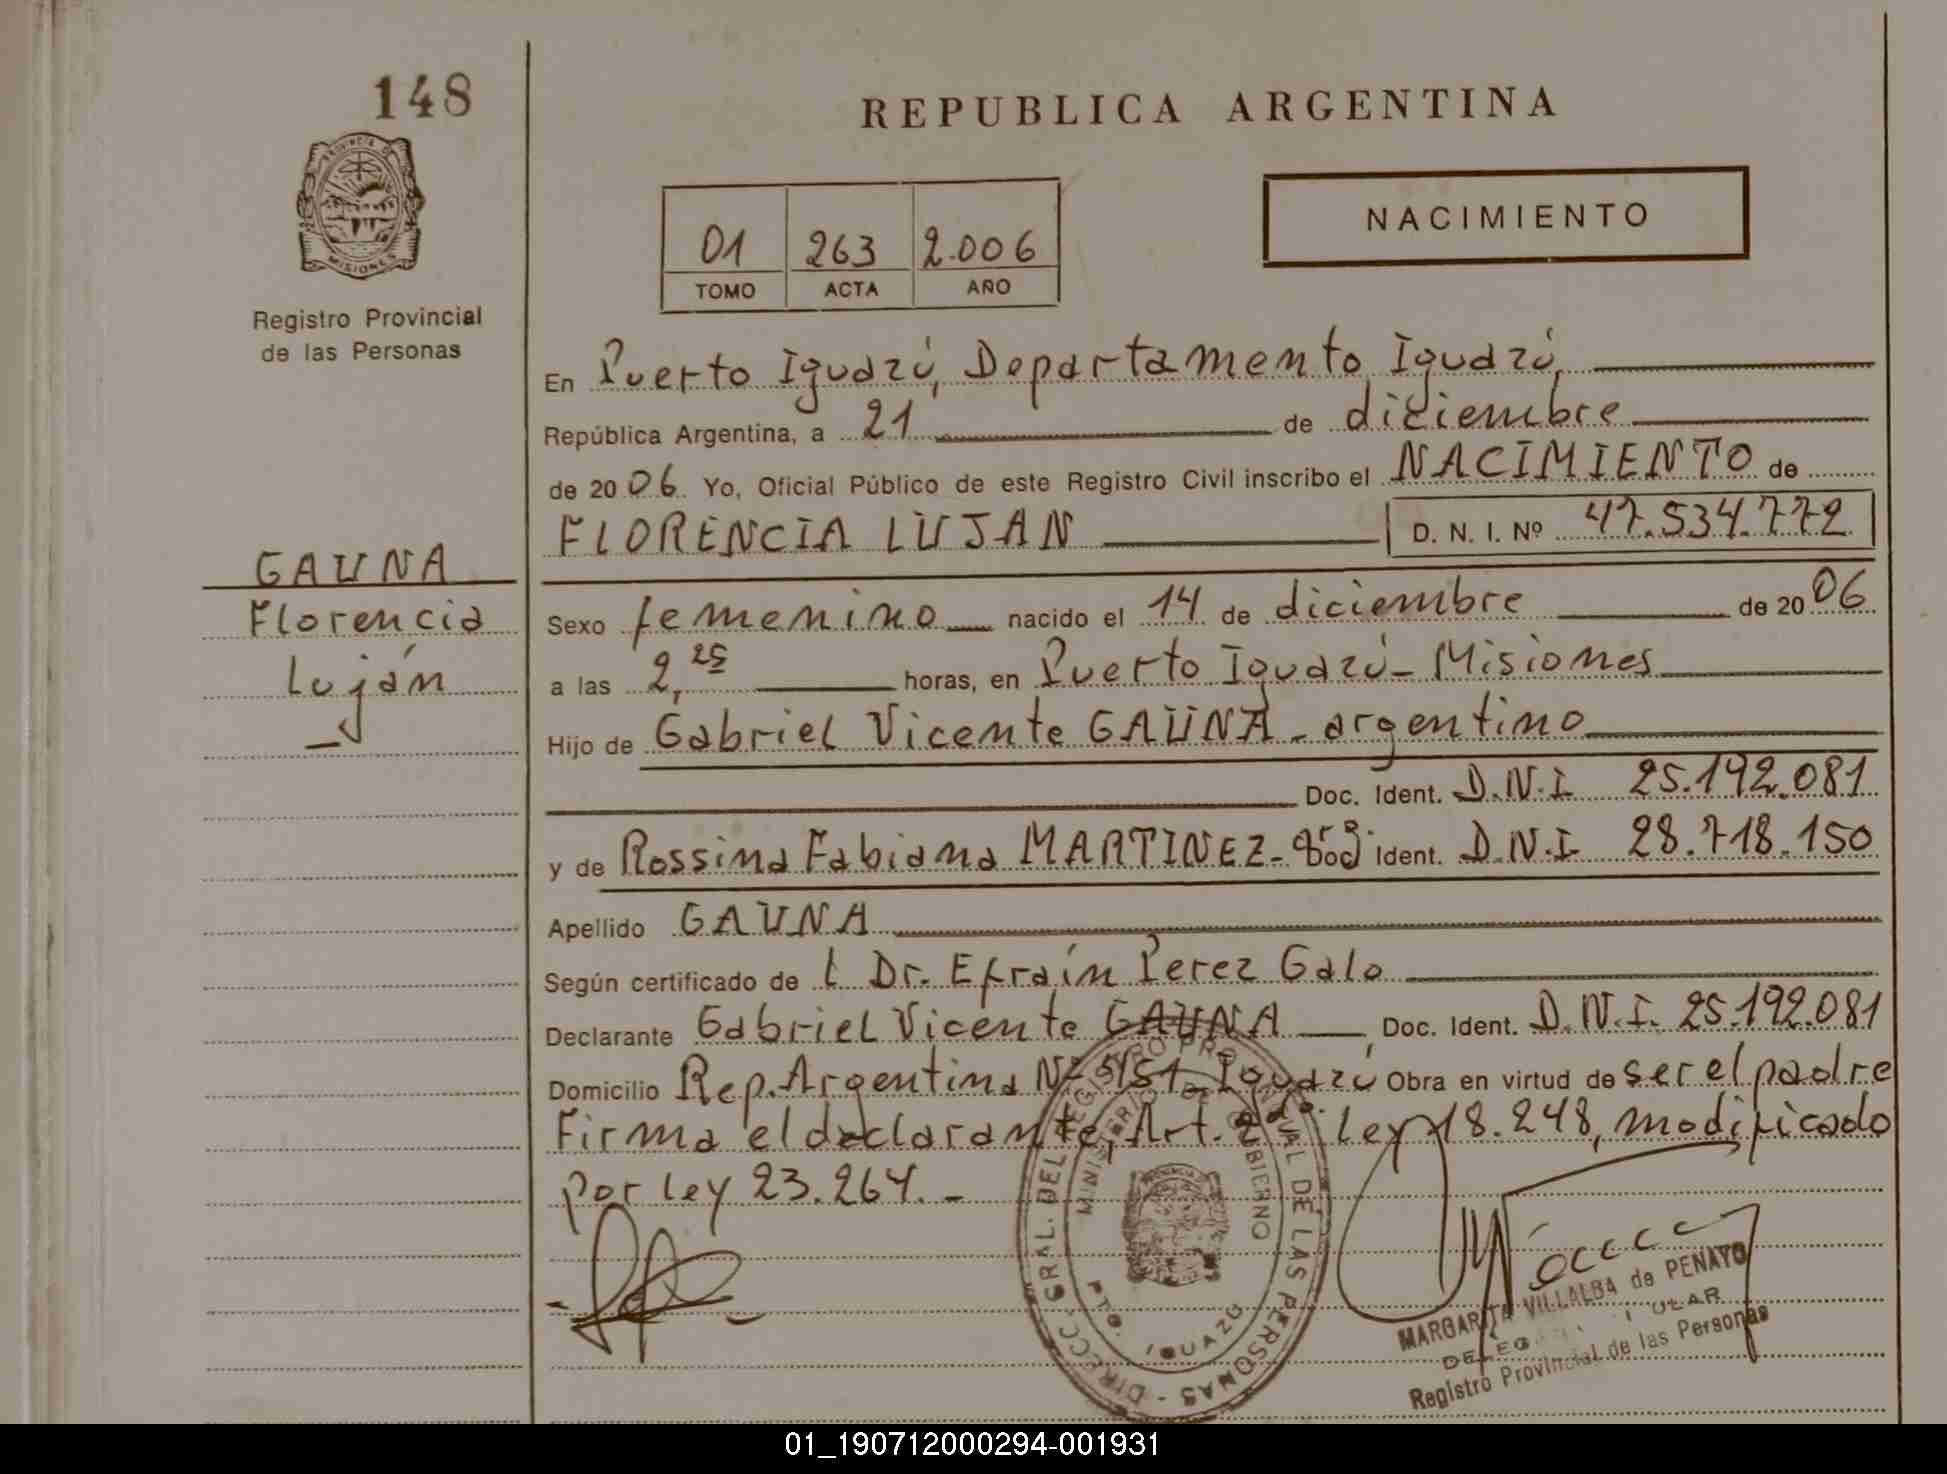 148
REPUBLICA ARGENTINA
PROVINCIA DE
MISIONES
Registro Provincial
de las Personas
NACIMIENTO
01 263 2.006
TOMO ACTA AÑO
En Puerto Iguazú, Departamento Iguazú,
República Argentina, a 21 de diciembre
de 2006 Yo, Oficial Público de este Registro Civil inscribo el NACIMIENTO de
FLORENCIA LUJAN D. N. I. Nº 47.534.772
GAUNA
Florencia
Luján
Sexo femenino nacido el 14 de diciembre de 2006
a las 2,25 horas, en Puerto Iguazú - Misiones
Hijo de Gabriel Vicente GAUNA - argentino
Doc. Ident. D.N.I 25.192.081
y de Rossina Fabiana MARTINEZ - arg Doc. Ident. D.N.I 28.718.150
Apellido GAUNA
Según certificado de l Dr. Efraín Perez Galo
Declarante Gabriel Vicente GAUNA Doc. Ident. D.N.I. 25.192.081
Domicilio Rep. Argentina Nº Iguazú Obra en virtud de ser el padre
Firma el declarante, Art. Ley 18.248, modificado
por ley 23.264. -
DIRECC. GRAL. DEL REGISTRO PROVINCIAL DE LAS PERSONAS -
MINISTERIO DE GOBIERNO
PTO. IGUAZU
MARGARITA VILLALBA de PENAYO
Registro Provincial de las Personas
01_190712000294-001931